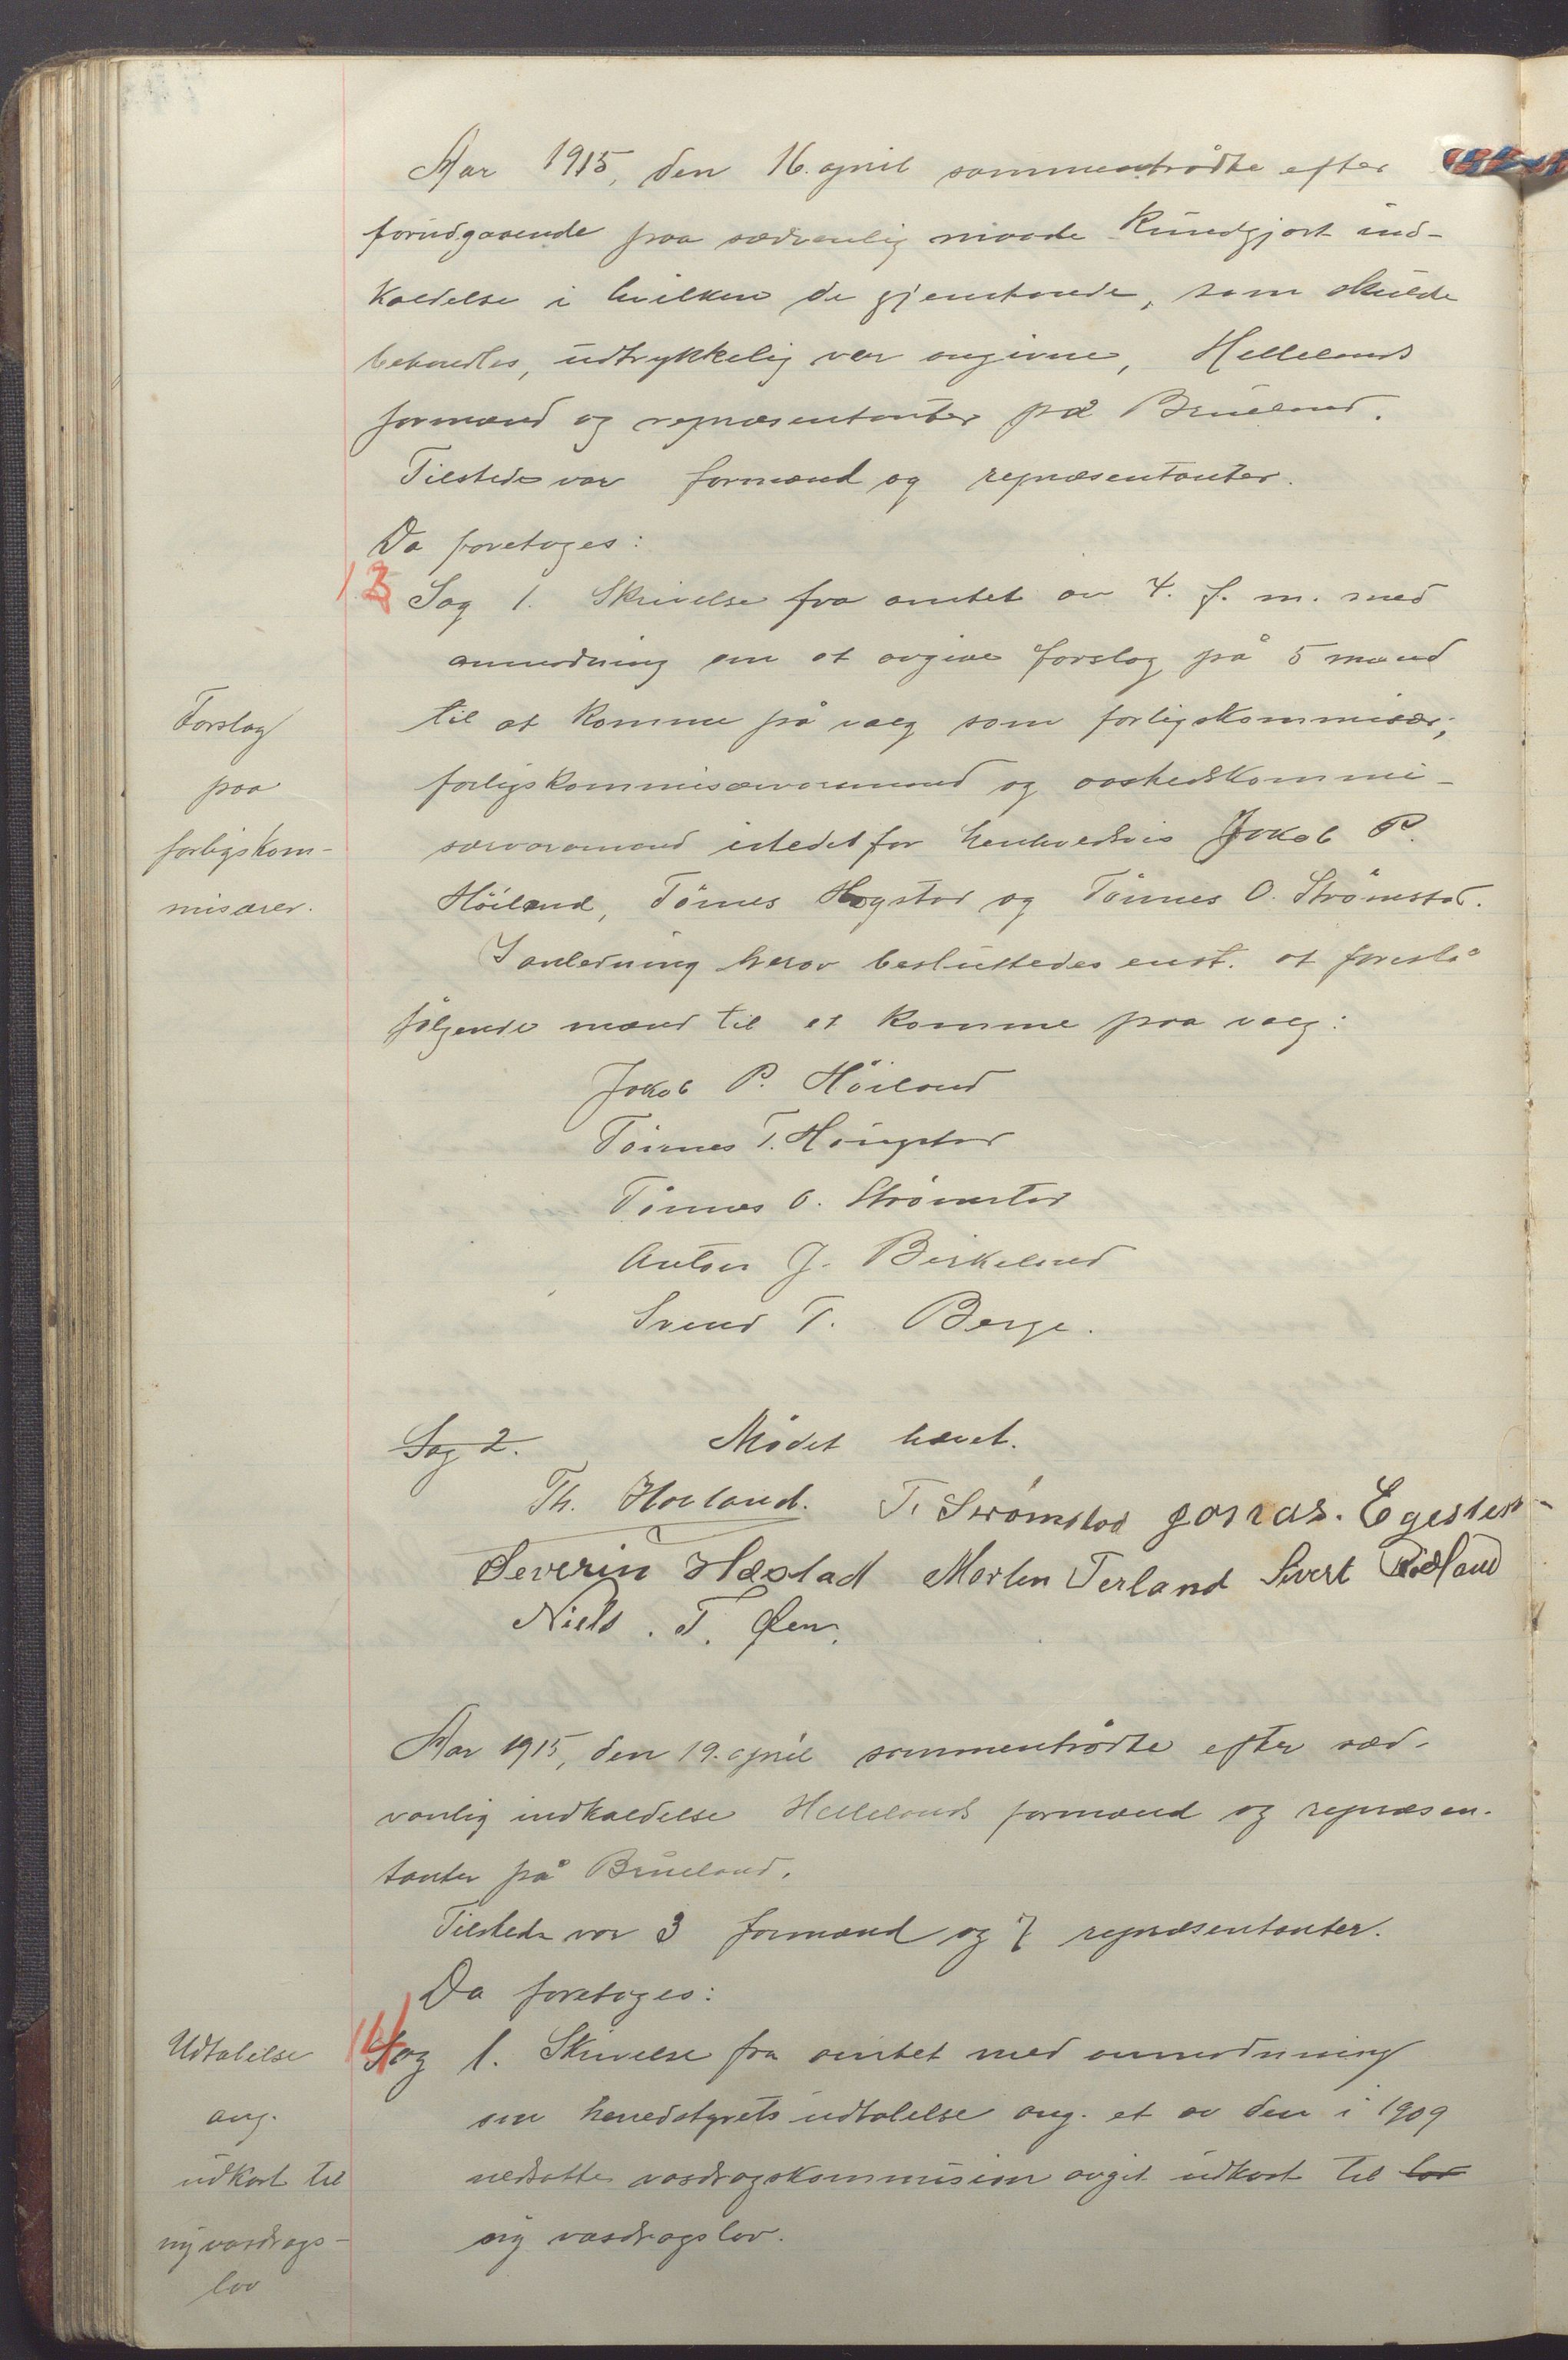 Aar 1915, den 16. april sammentrådte efter
forudgaaende paa sædvanlig maade kundgjort ind-
kaldelse i hvilken de gjenstande, som skulde
behandles, udtrykkelig var angivne, Hellelands
formænd og repræsentanter på Brueland.
Tilstede var formænd og repræsentanter.
Da foretoges:
13
Sag 1. Skrivelse fra amtet av 4. f. m. med
anmodning om at avgive forslag på 5 mænd
til at komme på valg som forligskommisær,
forligskommisærvaramand og aastedskommi-
særvaramand istedetfor henholdsvis Jakob P.
Höiland, Tönnes Hogstad og Tönnes O. Strömstad.
I anledning herav besluttedes enst. at foreslå
følgende mænd til at komme paa valg:
Jakob P. Höiland
Tönnes T.
Tönnes O. Strömstad
Anton J. Birkeland
Svend T. Berge.
Forslag
paa
forligskom-
misærer.
Sag 2. Mødet hævet.
Th. Hovland. T. Strømstad Jonas. Egesten
Severin Hæstad Morten Terland Sivert
Niels. T. Øen.
Aar 1915, den 19. april sammentrådte efter sæd-
vanlig indkaldelse Hellelands formænd og repræsen-
tanter på Brueland.
Tilstede var 3 formænd og 7 repræsentanter.
Da foretoges:
14
Sag 1. Skrivelse fra amtet med anmodning
om herredstyrets udtalelse ang. et av den i 1909
nedsatte vasdragskommision avgit udkast til lov
ny vasdragslov.
Udtalelse
ang.
udkast til
ny vasdrags-
lov